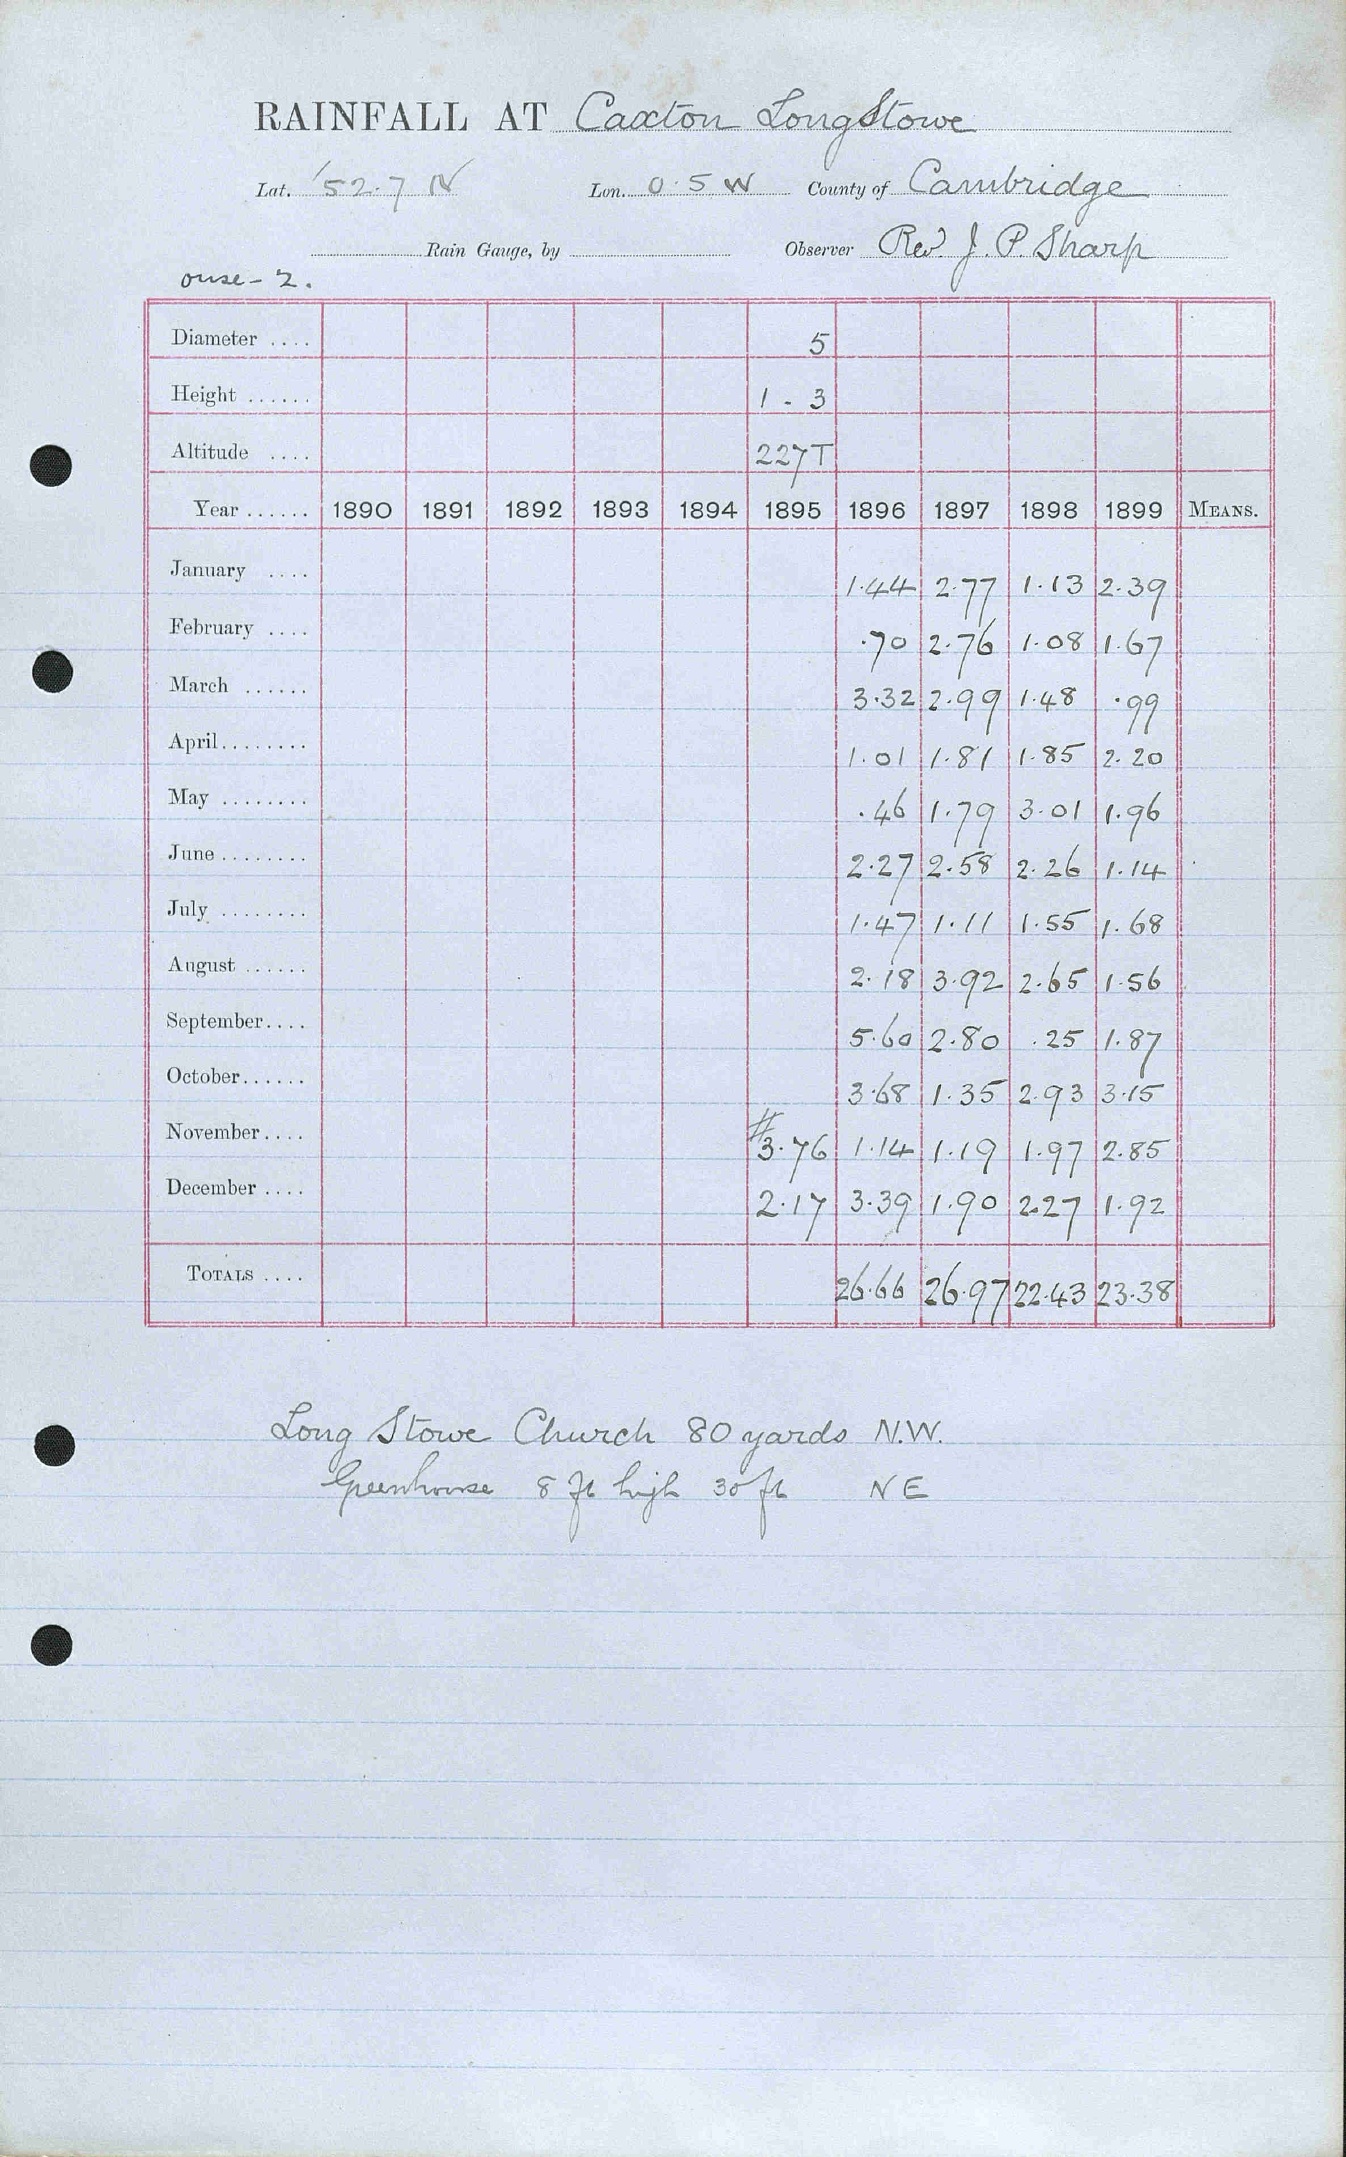 RAINFALL AT Caxton LongStowe
Lat. 52.7 N Lon. 0.5 W County of Cambridge
Rain Gauge, by Observer Rev. J. P. Sharp
ouse - 2.
Diameter .... 5
Height ...... 1 - 3
Altitude .... 227T
Year ...... 1890 1891 1892 1893 1894 1895 1896 1897 1898 1899 MEANS.
January .... 1.44 2.77 1.13 2.39
February .... .70 2.76 1.08 1.67
March ...... 3.32 2.99 1.48 .99
April ........ 1.01 1.81 1.85 2.20
May ........ .46 1.79 3.01 1.96
June ........ 2.27 2.58 2.26 1.14
July ........ 1.47 1.11 1.55 1.68
August ...... 2.18 3.92 2.65 1.56
September .... 5.60 2.80 .25 1.87
October ...... 3.68 1.35 2.93 3.15
November .... #3.76 1.14 1.19 1.97 2.85
December .... 2.17 3.39 1.90 2.27 1.92
TOTALS .... 26.66 26.97 22.43 23.38
Long Stowe Church 80 yards N.W.
Greenhouse 8 ft high 30 ft N E